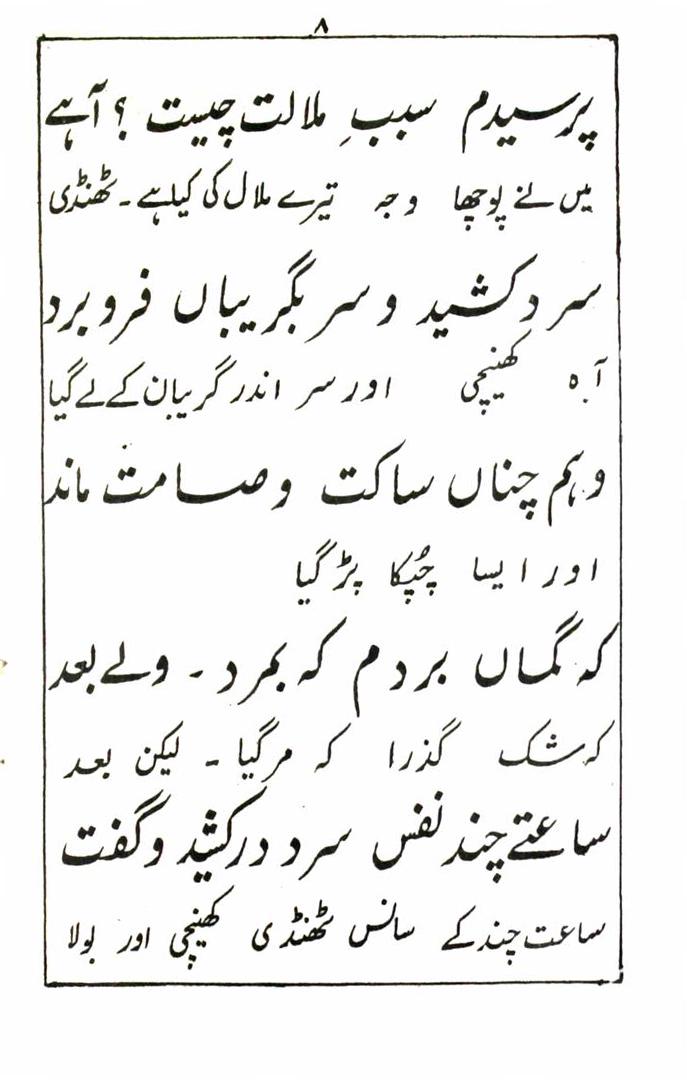 ۸
پرسیدم سببِ ملالت چیست ؟ آہے
میں نے پوچھا وجہ تیرے ملال کی کیا ہے ۔ ٹھنڈی
سرد کشید و سر بگریباں فرو برد
آہ کھنیچی اور سر اندر گریبان کے لے گیا
وہم چناں ساکت و صامت ماند
اور ایسا چُپکا پڑ گیا
کہ گماں بردم کہ بمرد ۔ ولے بعد
کہ شک گذرا کہ مر گیا ۔ لیکن بعد
ساعتے چند نفس سرد درکشید و گفت
ساعت چند کے سانس ٹھنڈی کھنیچی اور بولا